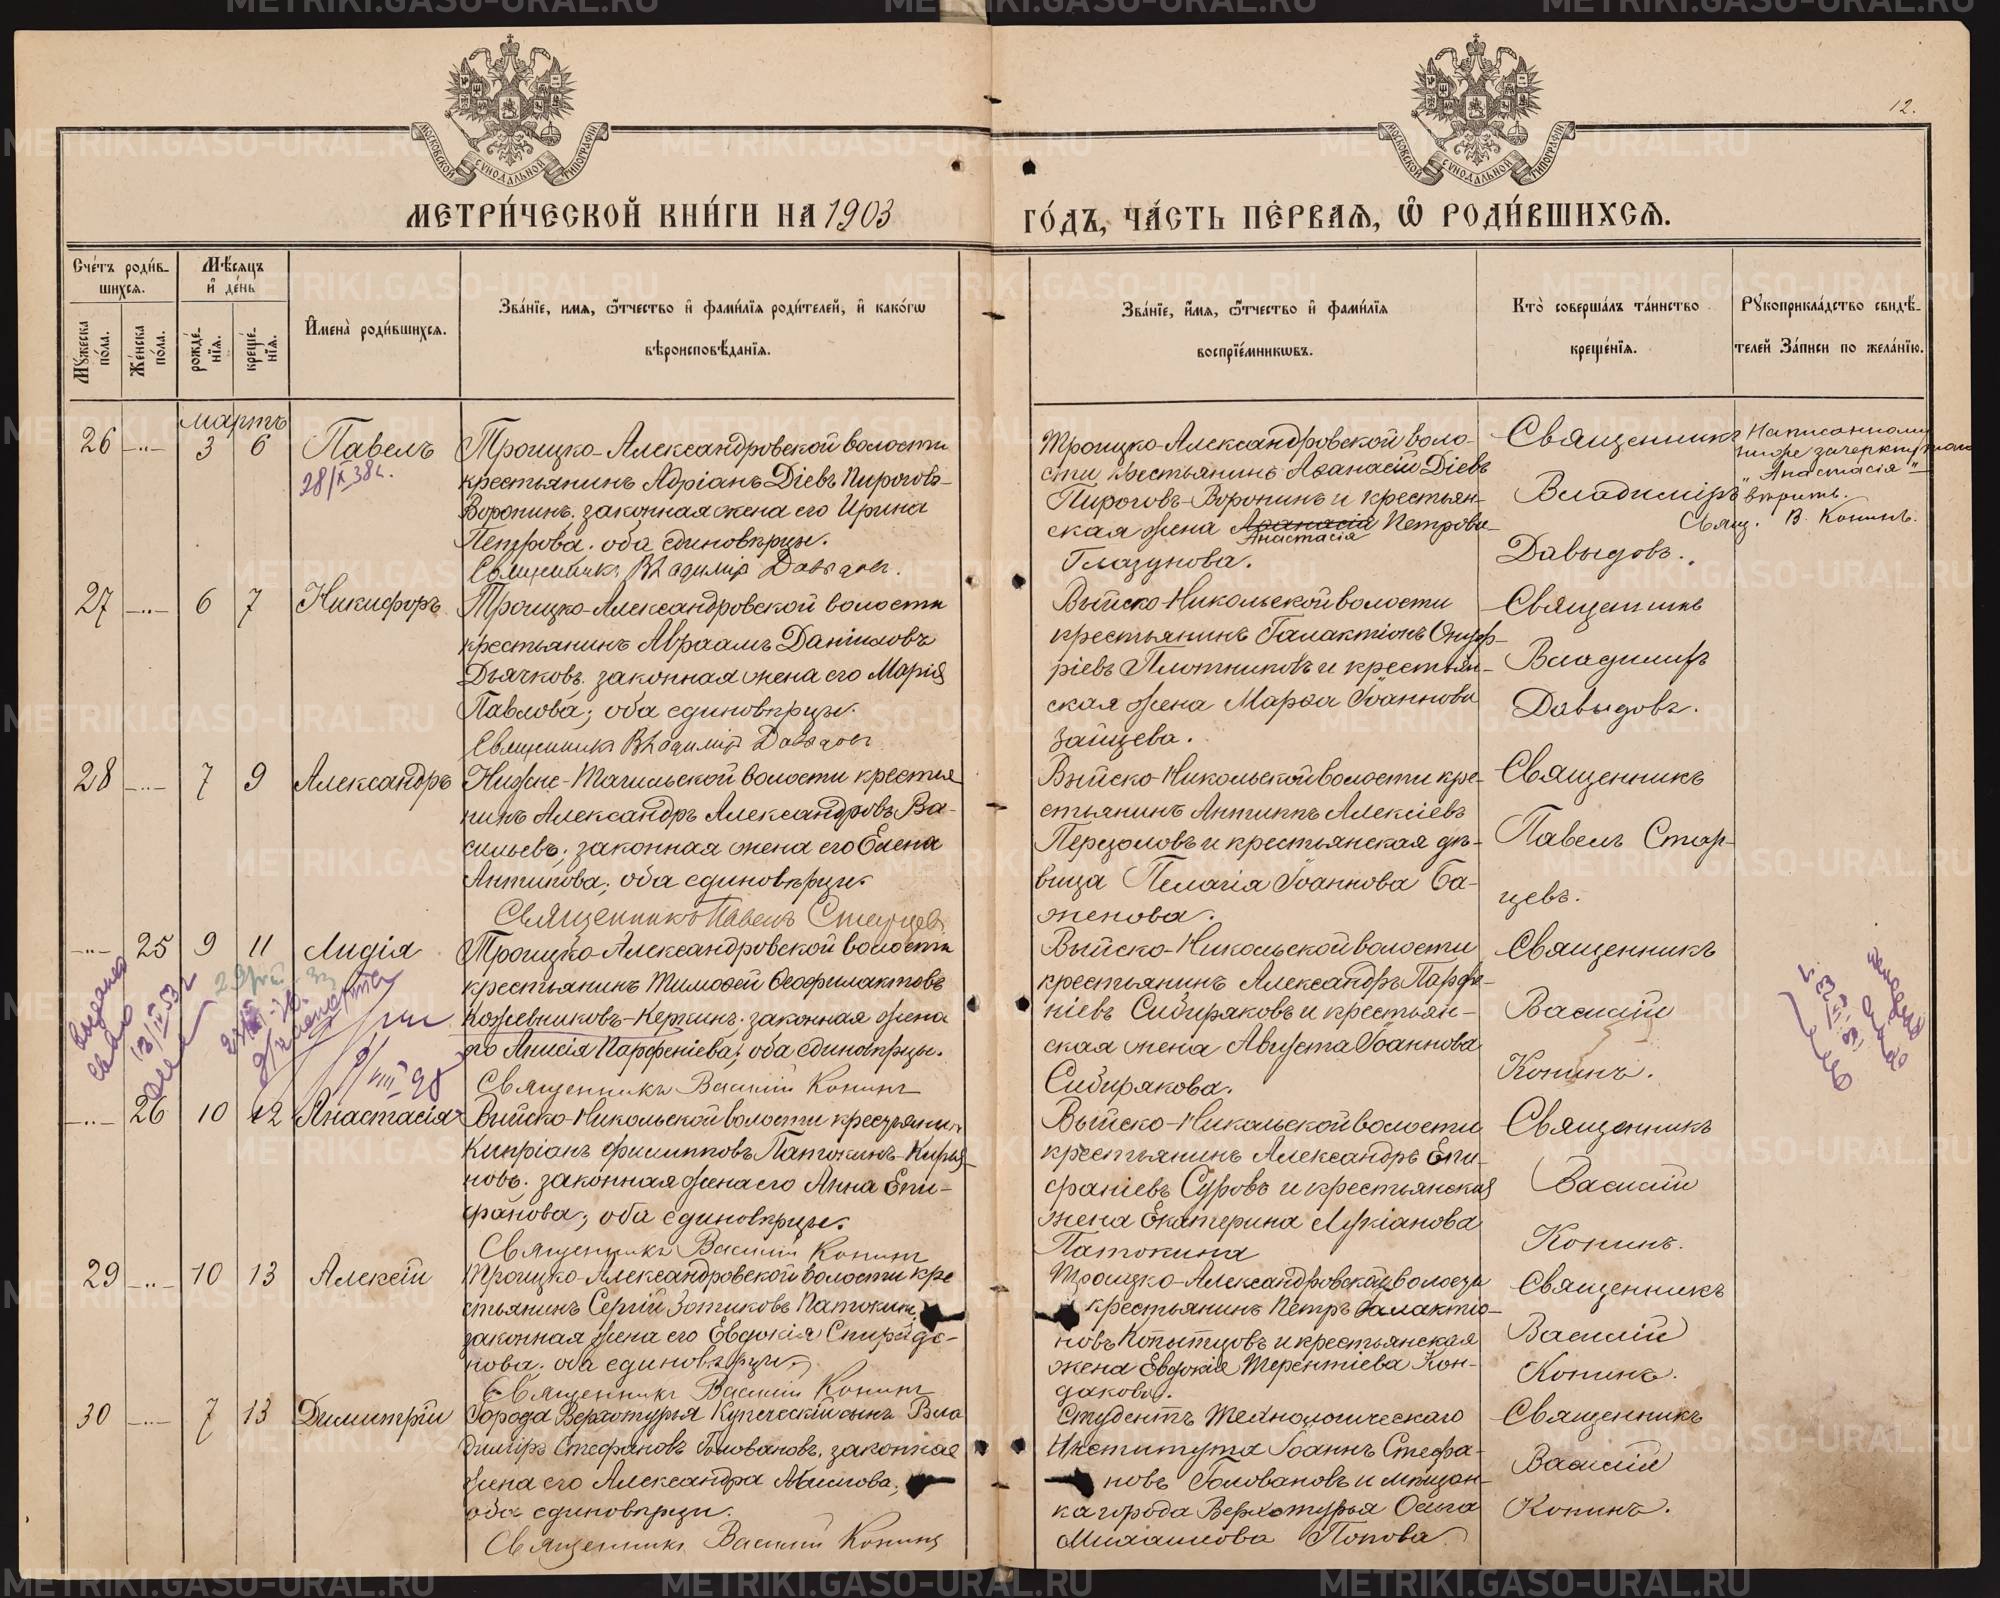 12.
МОСКОВСКОЙ СѴНОДАЛЬНОЙ ТИПОГРАФІИ
МОСКОВСКОЙ СѴНОДАЛЬНОЙ ТИПОГРАФІИ
МЕТРИ́ЧЕСКОЙ КНИ́ГИ НА 1903
ГО́ДЪ, ЧА́СТЬ ПЕ́РВАЯ, Ѽ РОДИ́ВШИХСЯ.
Сче́тъ роди́в-
шихся.
Мꙋжеска по́ла.
Же́нска по́ла.
Мѣ́сяцъ
и҆ де́нь
рожде́-
нїѧ.
креще́-
нїѧ.
И҆мена̀ роди́вшихся.
Зва́нїе, имѧ, ѻ҆́тчество и҆ фами́лїѧ роди́телей, и҆ како́гѡ
вѣроисповѣ́данїѧ.
Зва́нїе, и҆́мѧ, ѻ҆́тчество и҆ фами́лїѧ
воспрїе́мникѡвъ.
Кто̀ соверша́лъ та́инство
креще́нїѧ.
Рꙋкоприкла́дство свидѣ́-
телей За́писи по жела́нїю.
мартъ
26 —..— 3 6 Павелъ
28/X 38 г.
Троицко-Александровской волости
крестьянинъ Адріанъ Діевъ Пироговъ-
Воронинъ. законная жена его Ирина
Петрова. оба единовѣрцы.
Священникъ Владиміръ Давыдовъ.
Троицко-Александровской воло-
сти крестьянинъ Аѳанасій Діевъ
Пироговъ-Воронинъ и крестьян-
ская жена Аѳанасія Петрова
Анастасія
Глазунова.
Священникъ
Владиміръ
Давыдовъ.
Написанному
ниже зачеркнутаго
"Анастасія"
вѣрить.
Свящ. В. Конинъ.
27 —..— 6 7 Никифоръ
Троицко-Александровской волости
крестьянинъ Авраамъ Даниловъ
Дьячковъ. законная жена его Марія
Павлова; оба единовѣрцы.
Священникъ Владиміръ Давыдовъ
Выйско-Никольской волости
крестьянинъ Галактіонъ Онуф-
ріевъ Плотниковъ и крестьян-
ская жена Марѳа Іоаннова
Зайцева.
Священникъ
Владиміръ
Давыдовъ.
28 —..— 7 9 Александръ
Нижне-Тагильской волости крестья
нинъ Александръ Александровъ Ва-
сильевъ; законная жена его Елена
Антипова; оба единовѣрцы.
Священникъ Павелъ Старцевъ
Выйско-Никольской волости кре-
стьянинъ Антипъ Алексіевъ
Перезоловъ и крестьянская дѣ-
вица Пелагія Іоаннова Ба-
женова.
Священникъ
Павелъ Стар-
цевъ.
—..— 25 9 11 Лидія
Троицко-Александровской волости
крестьянинъ Тимоѳей Ѳеофилактовъ
Кожевниковъ-Кеткинъ. законная жена
его Анисія Парфеніева; оба единовѣрцы.
Священникъ Василій Конинъ
Выйско-Никольской волости
крестьянинъ Александръ Парфе-
ніевъ Сибиряковъ и крестьян-
ская жена Августа Іоаннова
Сибирякова.
Священникъ
Василій
Конинъ.
—..— 26 10 12 Анастасія
Выйско-Никольской волости крестьянин.
Кипріанъ Филипповъ Патокинъ-Кирья-
новъ. законная жена его Анна Епи-
фанова; оба единовѣрцы.
Священникъ Василій Конинъ
Выйско-Никольской волости
крестьянинъ Александръ Епи-
фаніевъ Суровъ и крестьянская
жена Екатерина Лукіанова
Патокина
Священникъ
Василій
Конинъ.
29 —..— 10 13 Алексій
Троицко-Александровской волости кре
стьянинъ Сергій Зотиковъ Патокинъ
законная жена его Евдокія Спиридо-
нова. оба единовѣрцы.
Священникъ Василій Конинъ
Троицко-Александровской волости
крестьянинъ Петръ Галактіо-
новъ Копытцовъ и крестьянская
жена Евдокія Терентіева Кон-
дакова.
Священникъ
Василій
Конинъ.
30 —..— 7 13 Димитрій
Города Верхотурья Купеческій сынъ Вла
диміръ Стефановъ Головановъ, законная
жена его Александра Авимова,
оба единовѣрцы.
Священникъ Василій Конинъ
Студентъ Технологическаго
Института Іоаннъ Стефа-
новъ Головановъ и мѣщан-
ка города Верхотурья Ольга
Михаилова Попова
Священникъ
Василій
Конинъ.
METRIKI.GASO-URAL.RU